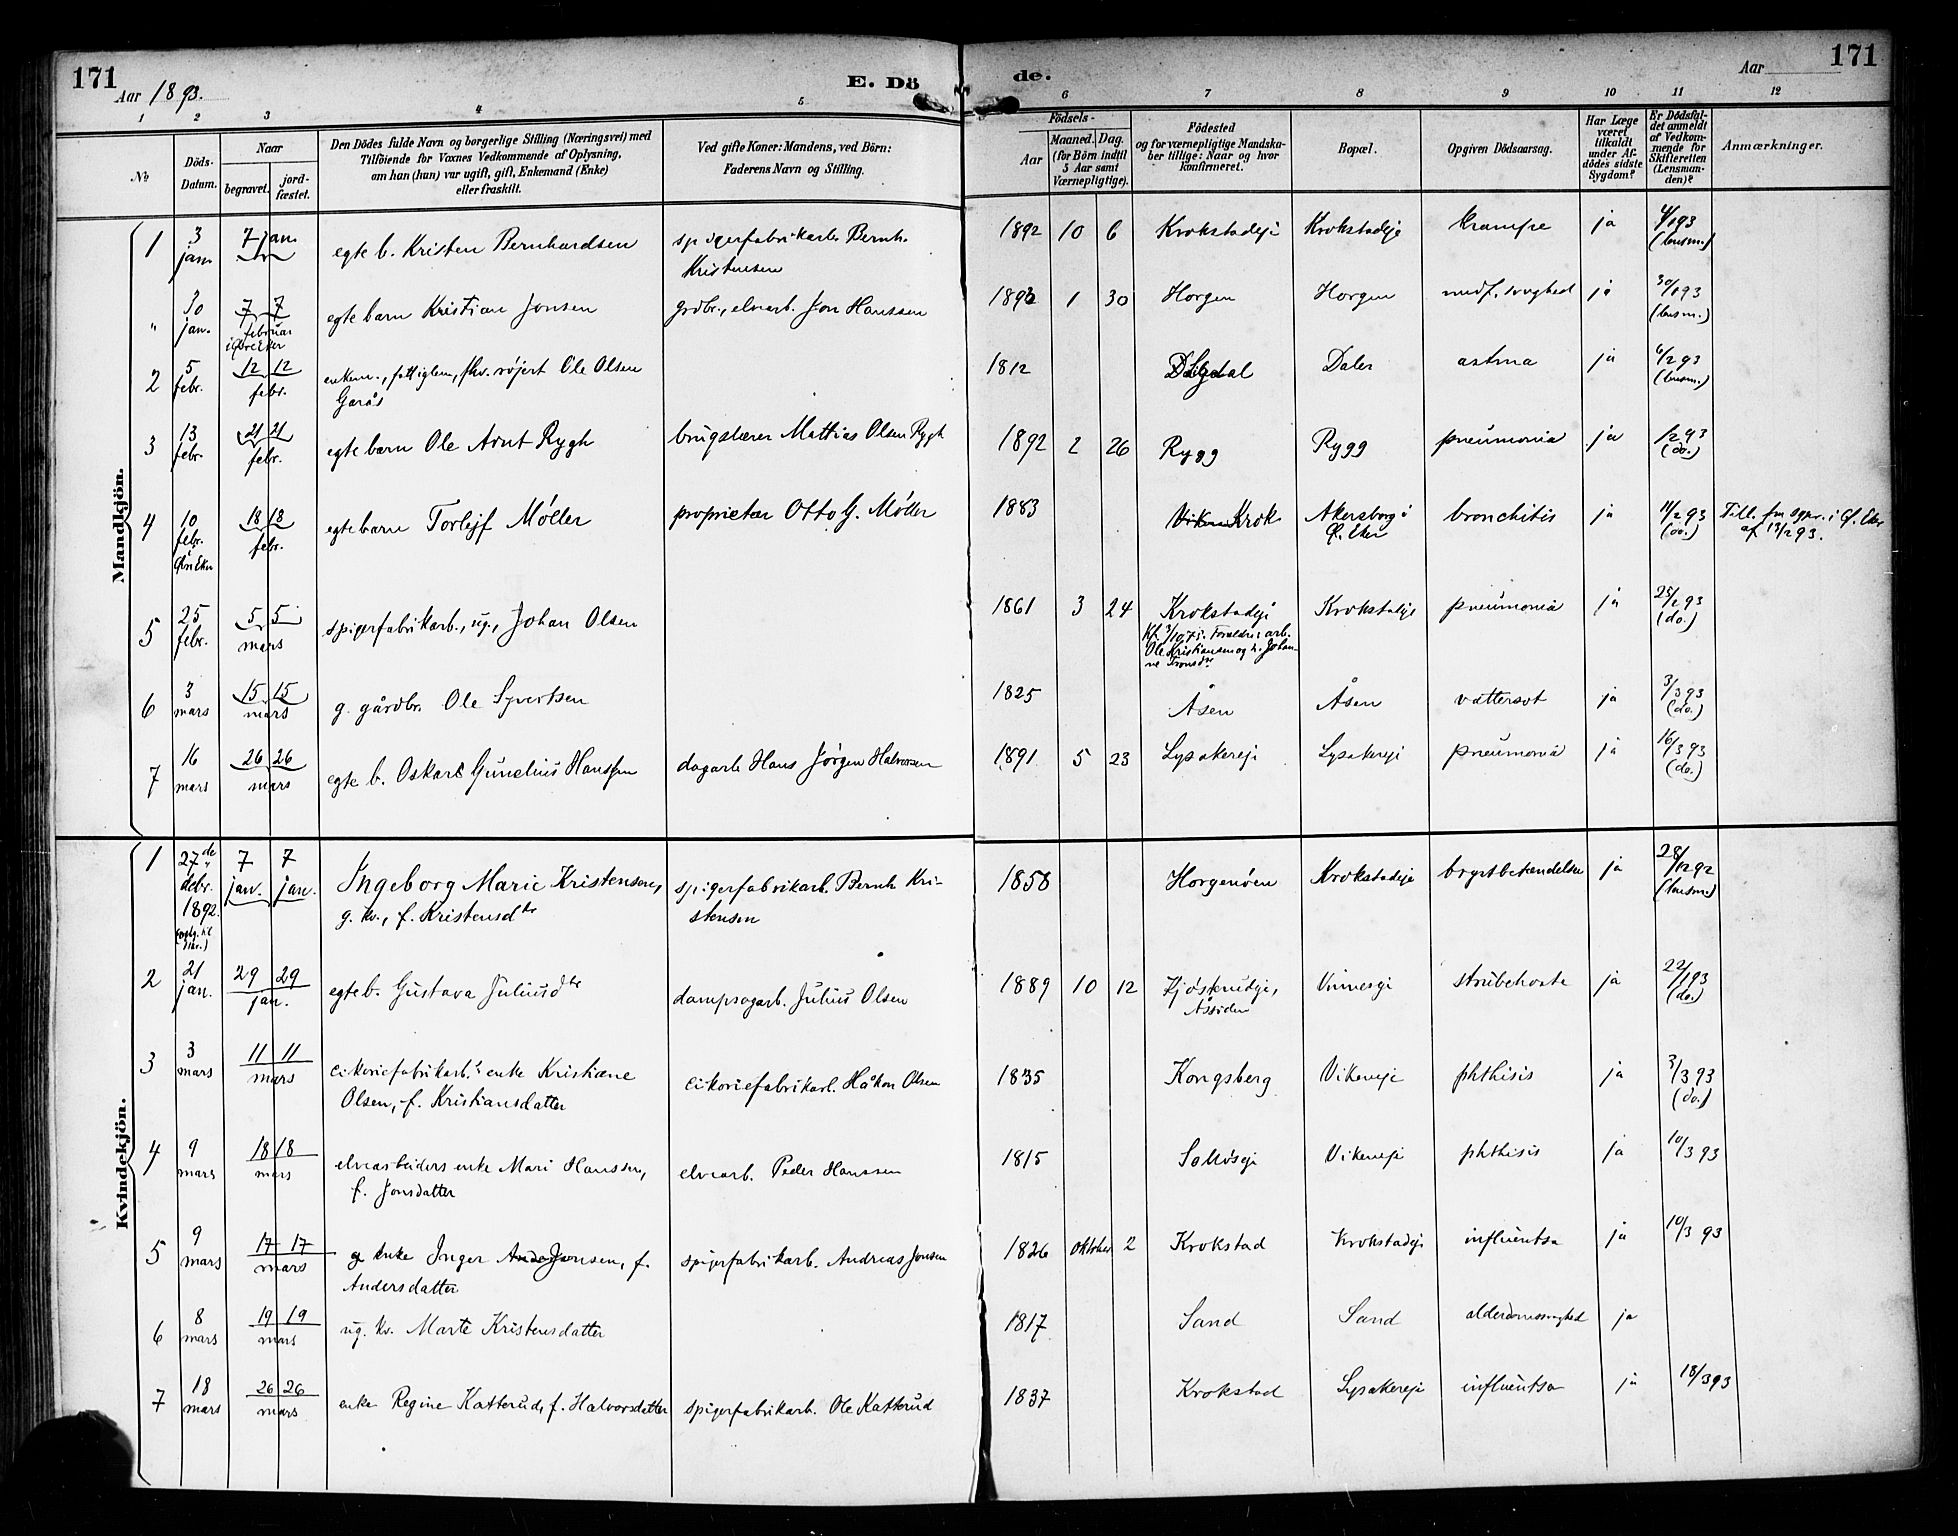 171
Aar 1893.
E. Dö
de.
Aar
171
1 2 3 4 5 6 7 8 9 10 11 12
No
Döds-
Datum.
Naar
begravet.
jord-
fæstet.
Den Dödes fulde Navn og borgerlige Stilling (Næringsvei) med
Tilföiende for Voxnes Vedkommende af Oplysning,
om han (hun) var ugift, gift, Enkemand (Enke)
eller fraskilt.
Ved gifte Koner: Mandens, ved Börn:
Faderens Navn og Stilling.
Födsels-
Aar
Maaned. Dag.
(for Börn indtil
5 Aar samt
Værnepligtige).
Födested
og for værnepligtige Mandska-
ber tillige: Naar og hvor
konfirmeret.
Bopæl.
Opgiven Dödsaarsag.
Har Læge
været
tilkaldt
under Af-
dödes sidste
Sygdom?
Er Dödsfal-
det anmeldt
af Vedkom-
mende for
Skifteretten
(Lensman-
den)?
Anmærkninger.
Mandkjön.
1 3 jan. 7 jan. egte b. Kristen Bernhardsen spigerfabrikarb. Bernh. Kristensen 1892 10 6 Krokstadeje Krokstadeje krampe ja 4/1 93 (lensm.)
" 30 jan. 7 7 februar i Øvre Eker egte barn Kristian Jonsen grdbr., elvarb. Jon Hanssen 1893 1 30 Horgen Horgen medf. svaghed ja 30/1 93 (lensm.)
2 5 febr. 12 12 febr. enkem., fattiglem, Ole Olsen Garås 1812 Daler astma ja 6/2 93 (lensm.)
3 13 febr. 21 21 febr. egte barn Ole Arnt Rygh brugslærer Mattias Olsen Rygh 1892 2 26 Rygg Rygg pneumonia ja (do.)
4 10 febr. Øvre Eker 18 18 febr. egte barn Torlejf Møller proprietær Otto G. Møller 1883 Krok Akersborg i Ø. Eker bronchitis ja 11/2 93 (do.) Till. fra sgpr. i Ø. Eker af 17/2 93.
5 25 febr. 5 5 mars spigerfabrikarb., ug., Johan Olsen 1861 3 24 Krokstadeje Forældre: arb. Ole Kristiansen og h. Johanne Krokstadeje pneumonia ja 25/2 93 (do.)
6 3 mars 15 15 mars g. gårdbr. Ole Syvertsen 1825 Åsen Åsen vattersot ja 3/3 93 (do.)
7 16 mars 26 26 mars egte b. Oskar Gunelius Hanssen dagarb. Hans Jørgen Halvorsen 1891 5 23 Lysakereje Lysakereje pneumonia ja 16/3 93 (do.)
Kvindekjön.
1 27de debr. 1892 7 jan. 7 jan. Ingeborg Marie Kristensen, g. kv., f. Kristensdtr spigerfabrikarb. Bernh. Kristensen 1858 Horgenøen Krokstadeje brystbetændelse ja 28/12 92 (lensm.)
2 21 jan. 29 29 jan. egte b. Gustava Juliusdtr dampsagarb. Julius Olsen 1889 10 12 Åssiden Vinneseje strubehoste ja 22/1 93 (do.)
3 3 mars 11 11 mars cikoriefabrikarb.s enke Kristiane Olsen, f. Kristiansdatter cikoriefabrikarb. Håkon Olsen 1835 Kongsberg Vikeneje phthisis ja 3/3 93 (do.)
4 9 mars 18 18 mars elvearbeiders enke Mari Hanssen, f. Jonsdatter elvearb. Peder Hanssen 1815 Vikeneje phthisis ja 10/3 93
5 9 mars 17 17 mars enke Inger Jonsen, f. Andersdatter spigerfabrikarb. Andreas Jonsen 1826 oktober 2 Krokstad Krokstadeje influentsa ja 10/3 93
6 8 mars 19 19 mars ug. kv. Marte Kristensdatter 1817 Sand Sand alderdomssvaghed ja
7 18 mars 26 26 mars enke Regine Katterud, f. Halvorsdatter spigerfabrikarb. Ole Katterud 1837 Krokstad Lysakereje influentsa ja 18/3 93